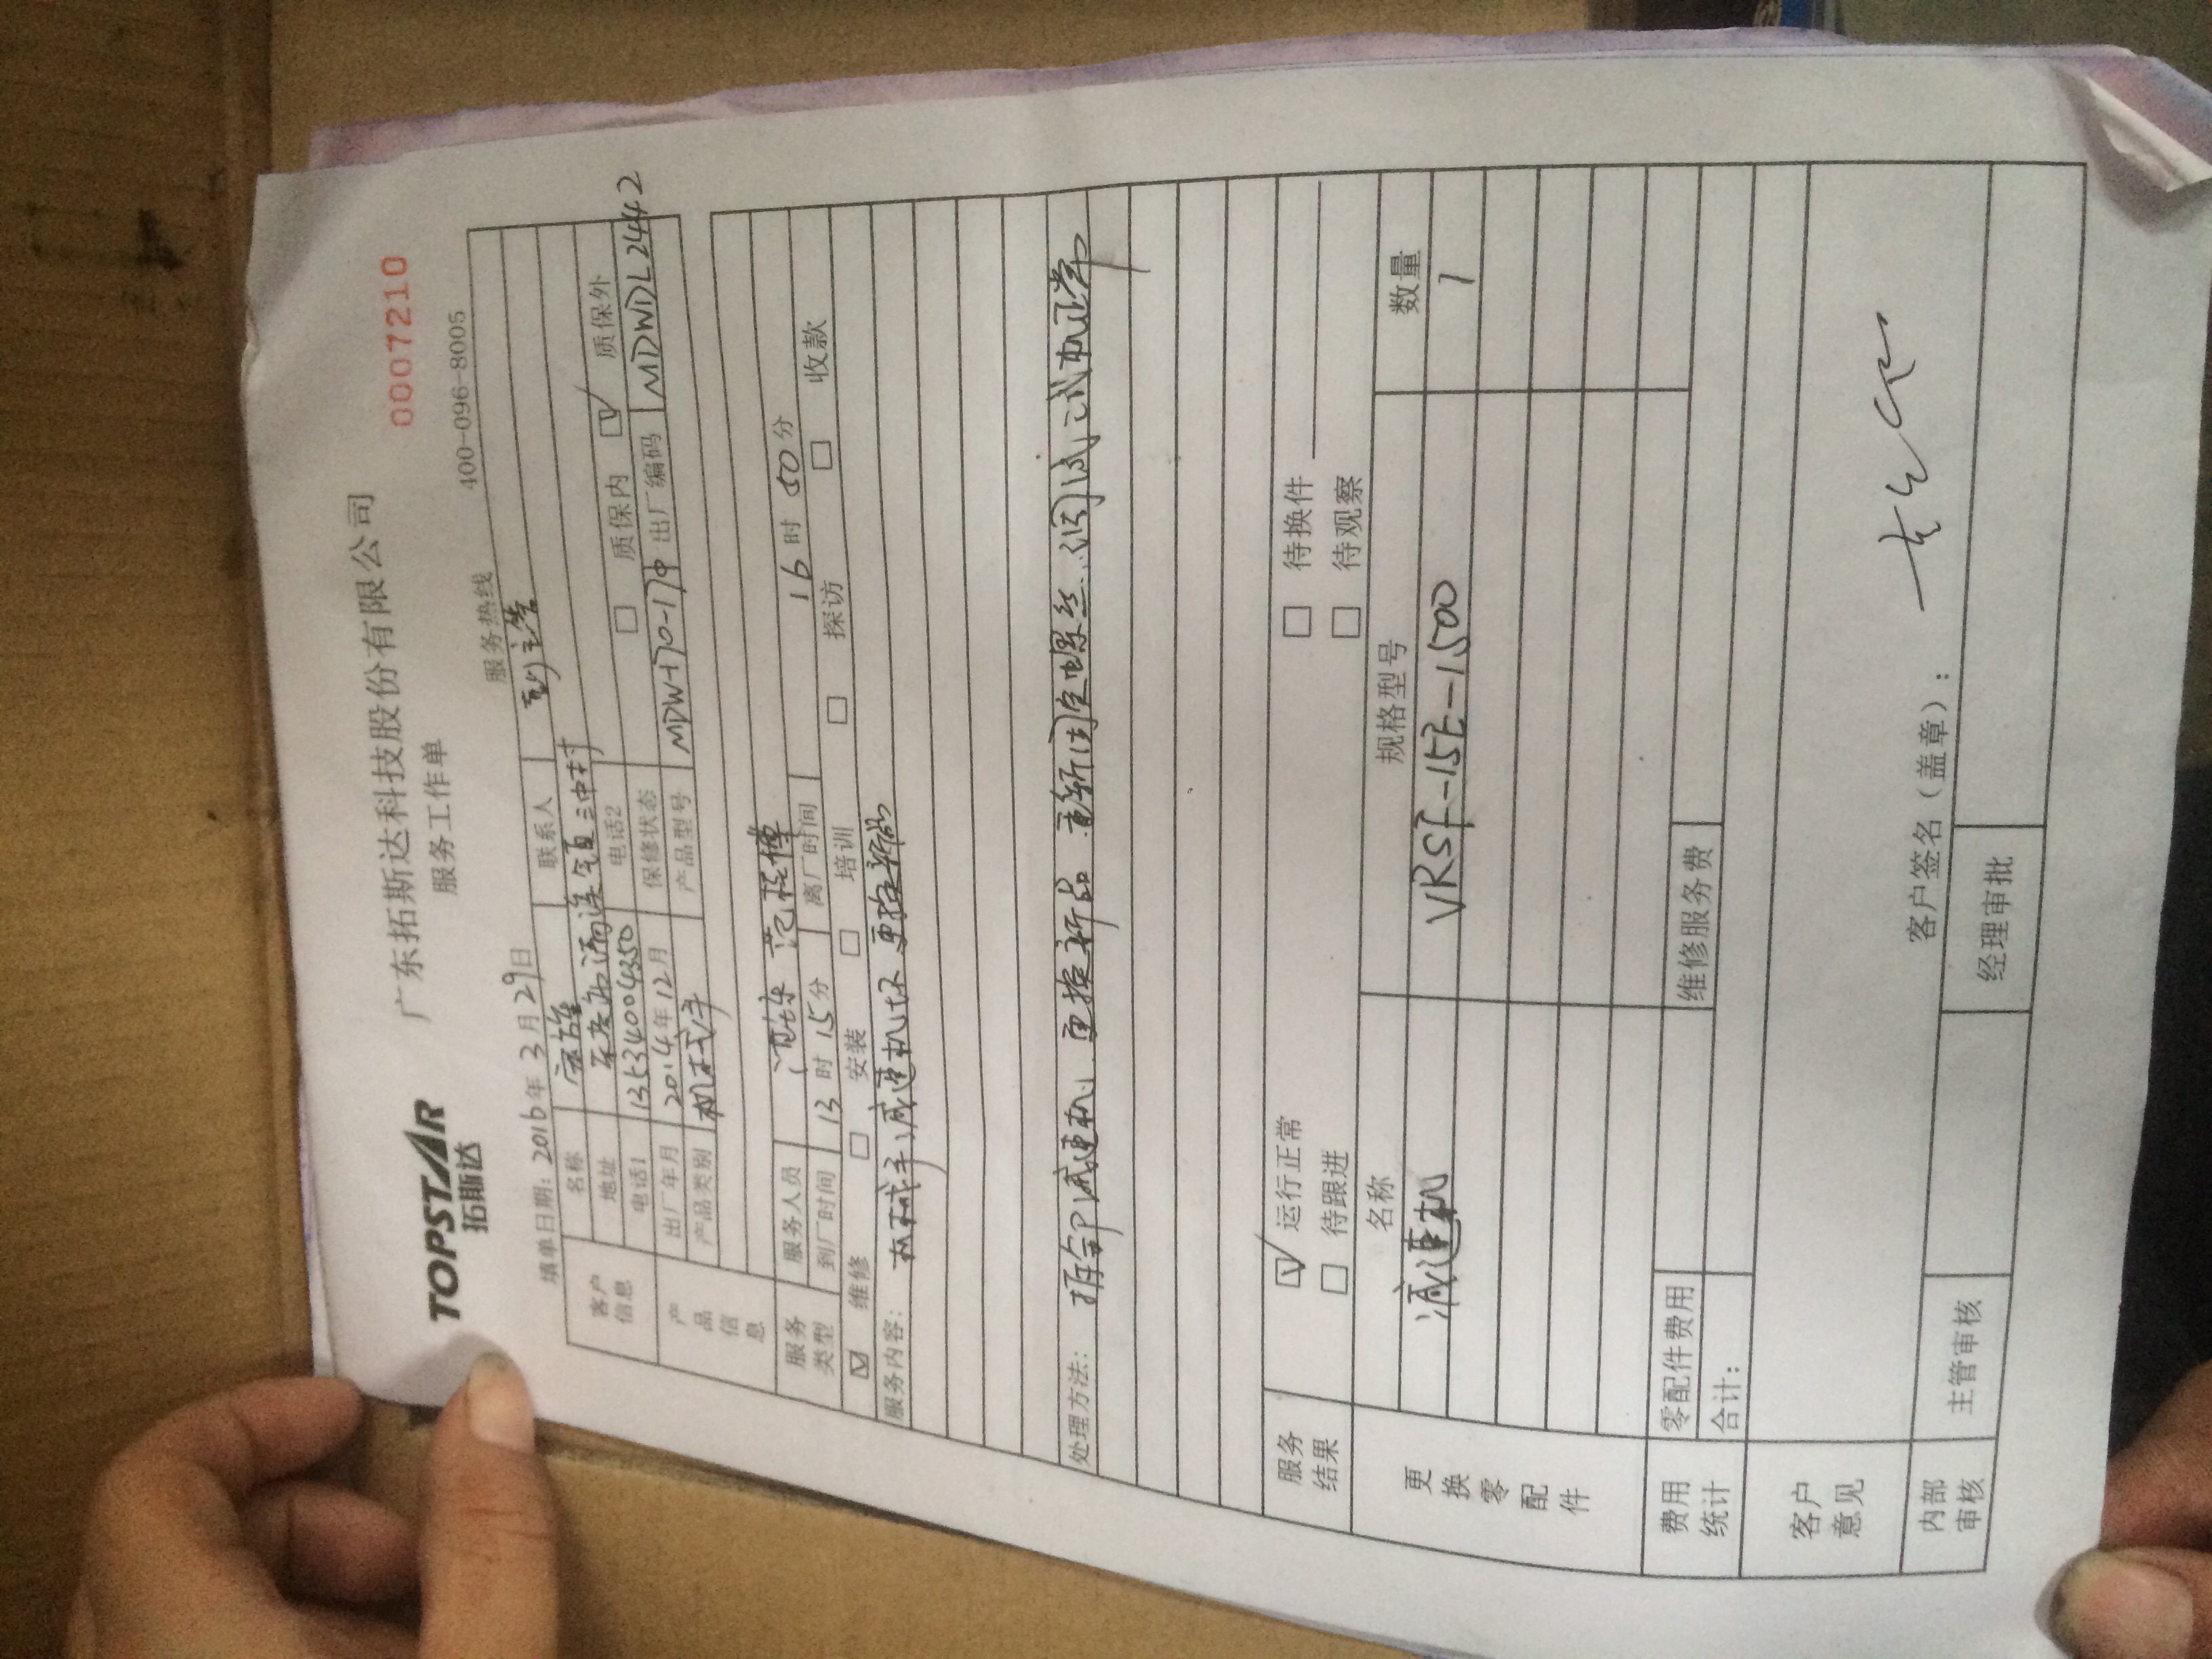 TOPSTAR
拓斯达
广东拓斯达科技股份有限公司
0007210
服务工作单
服务热线 400-096-8005
填单日期: 2016年3月29日
客户信息
名称 宏雄 联系人 彭主管
地址
电话1 13534004350 电话2
产品信息
出厂年月 2014年12月 保修状态 □ 质保内 ☑ 质保外
产品类别 机械手 产品型号 出厂编码 MDWDL2442
服务类型
服务人员
到厂时间 13时15分 离厂时间 16时50分
☑ 维修 □ 安装 □ 培训 □ 探访 □ 收款
服务内容: 机械手减速机坏 更换新的
处理方法: 拆卸减速机,更换新品,重新固定螺丝,调试,试机正常
服务结果
☑ 运行正常 □ 待换件
□ 待跟进 □ 待观察
更换零配件
名称 规格型号 数量
减速机 VRSF-15E-1500 1
费用统计
零配件费用 维修服务费
合计:
客户意见
客户签名(盖章):
内部审核
主管审核 经理审批